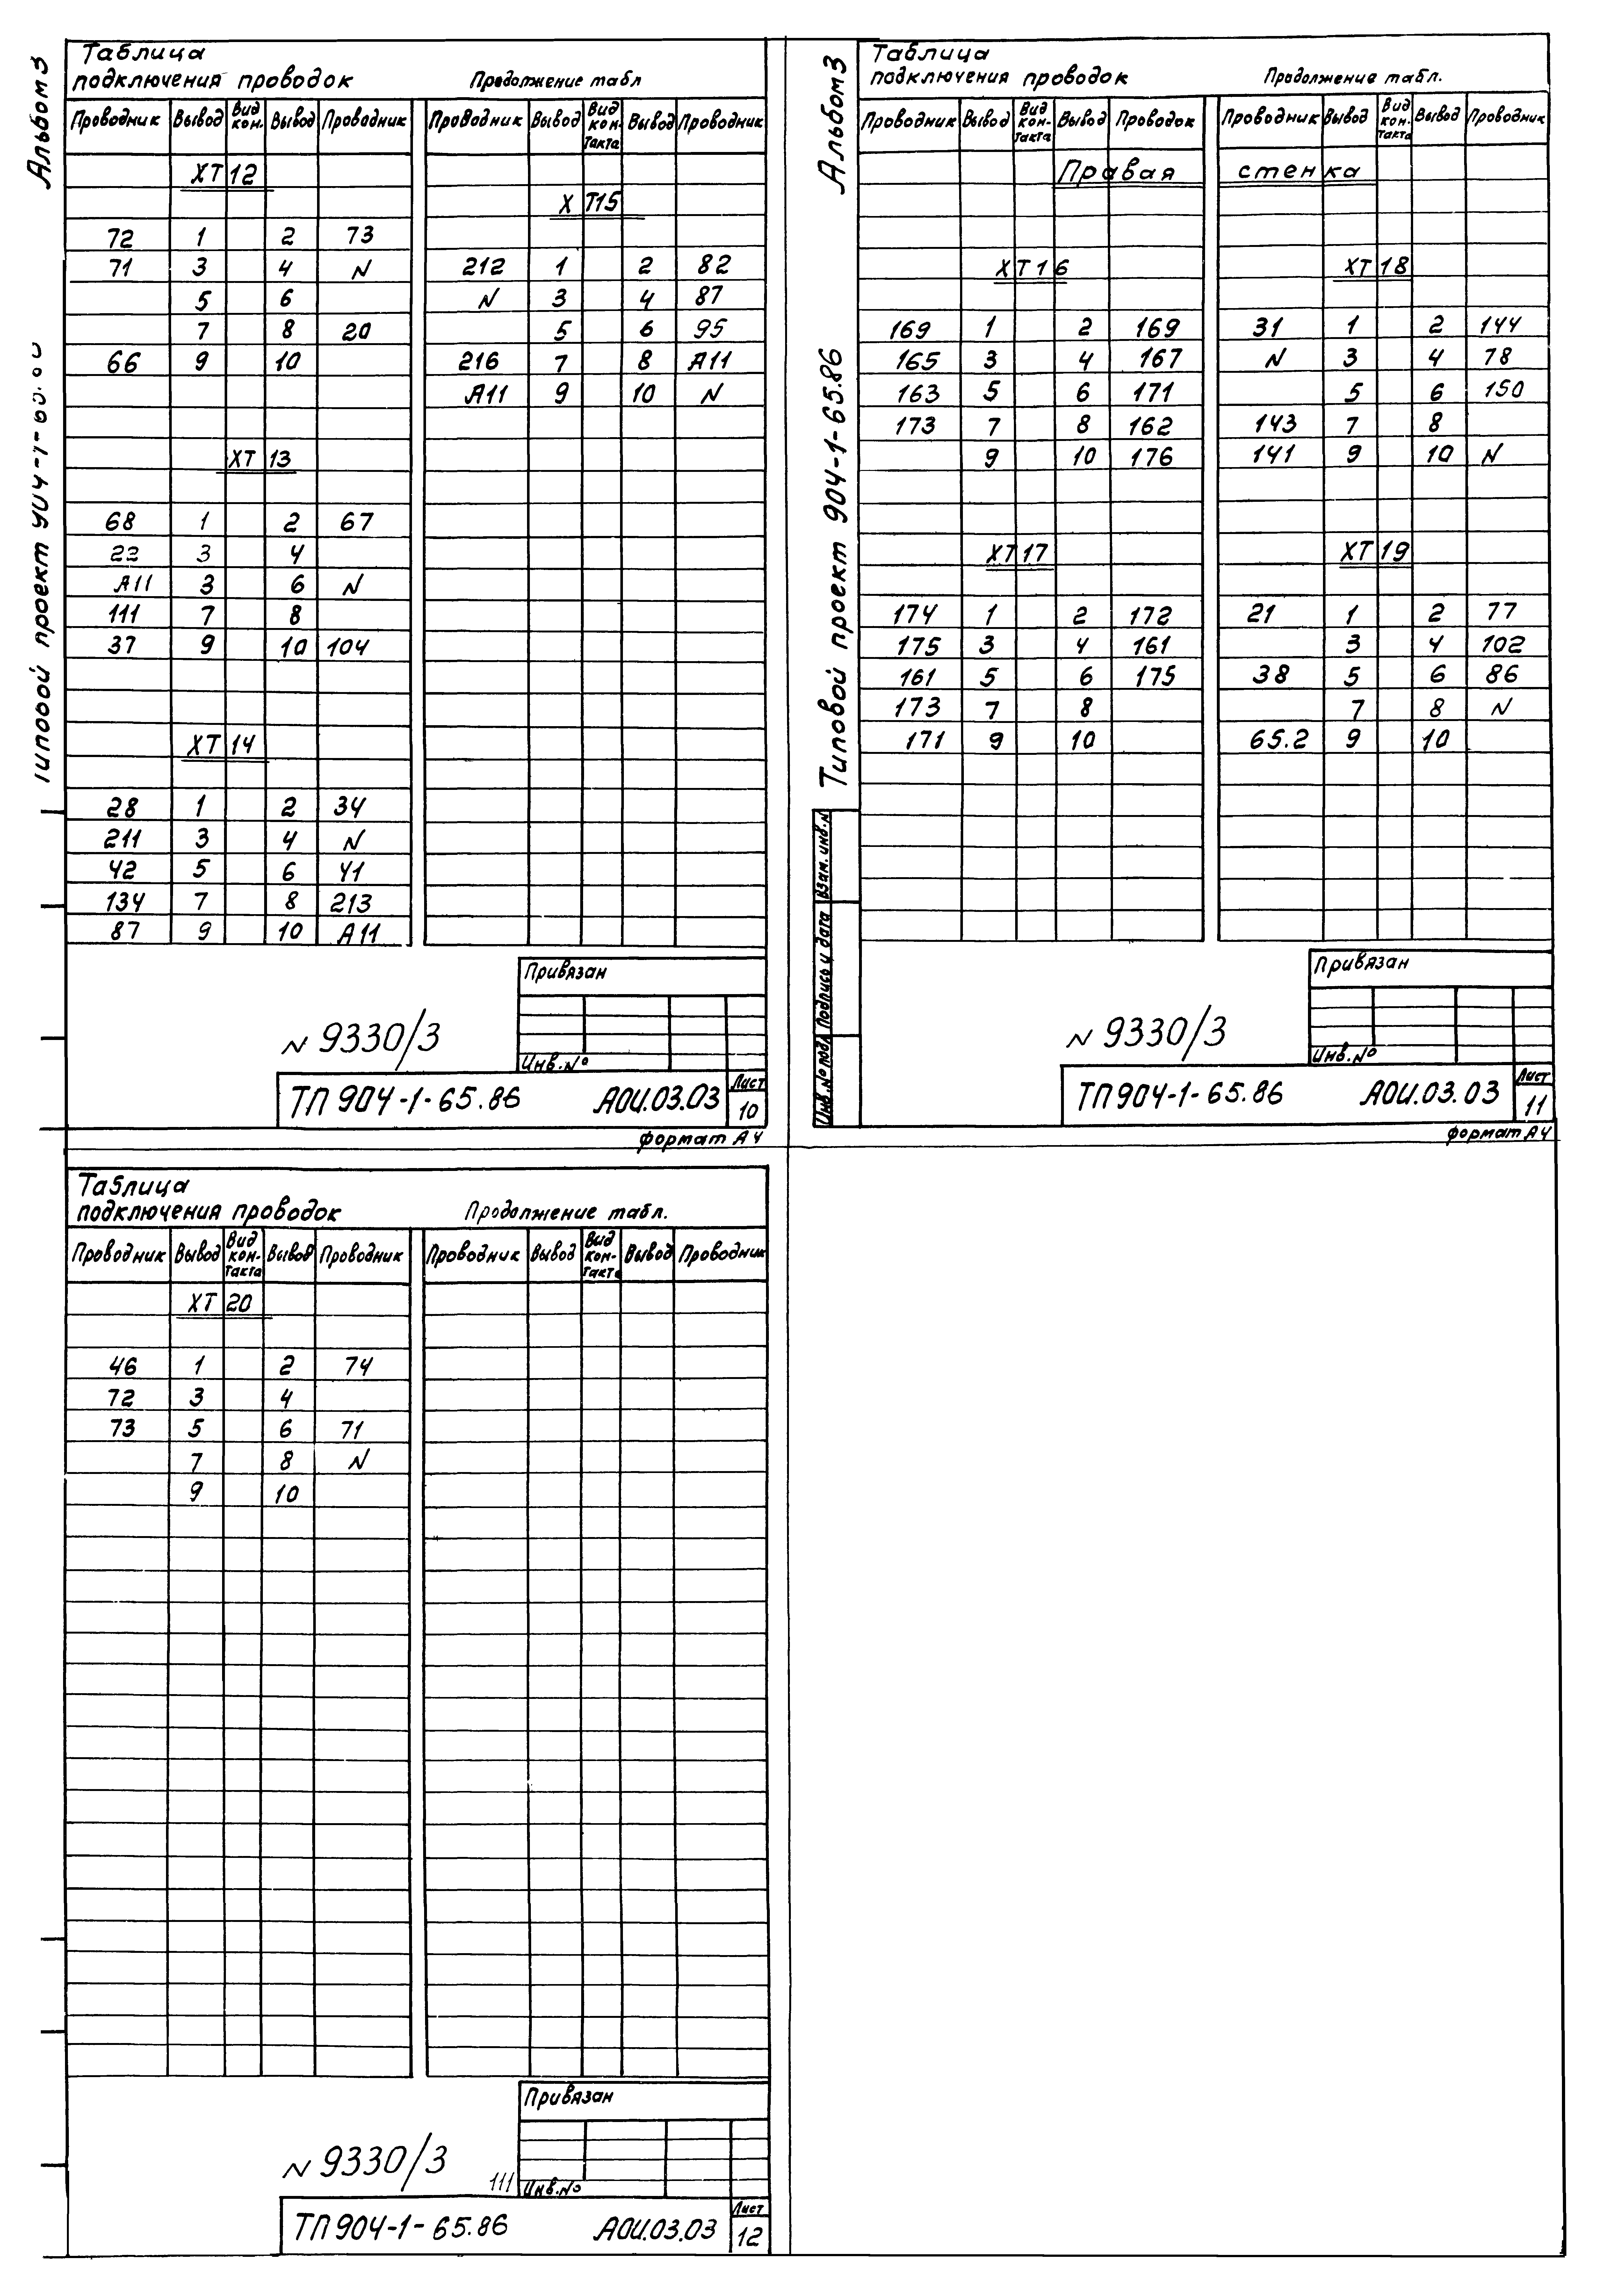 Альбом 3
Таблица
подключения проводок Продолжение табл
Проводник Вывод Вид кон. Вывод Проводник Проводник Вывод Вид кон- такта Вывод Проводник
ХТ 12
72 1 2 73
71 3 4 N
5 6
7 8 20
66 9 10
ХТ 13
68 1 2 67
22 3 4
А11 3 6 N
111 7 8
37 9 10 104
ХТ 14
28 1 2 34
211 3 4 N
42 5 6 41
134 7 8 213
87 9 10 А11
ХТ15
212 1 2 82
N 3 4 87
5 6 95
216 7 8 А11
А11 9 10 N
проект
Привязан
Инв.№
N 9330/3
ТП 904-1-65.86 АОИ.03.03 Лист 10
формат А4
Альбом 3
Типовой проект 904-1-65.86
Таблица
подключения проводок Продолжение табл.
Проводник Вывод Вид кон- такта Вывод Проводок Проводник Вывод Вид кон- такта Вывод Проводник
Правая стенка
ХТ16
169 1 2 169
165 3 4 167
163 5 6 171
173 7 8 162
9 10 176
ХТ17
174 1 2 172
175 3 4 161
161 5 6 175
173 7 8
171 9 10
ХТ18
31 1 2 144
N 3 4 78
5 6 150
143 7 8
141 9 10 N
ХТ19
21 1 2 77
3 4 102
38 5 6 86
7 8 N
65.2 9 10
Взам. инв. N
Подпись и дата
Инв. № подл
Привязан
Инв.№
N 9330/3
ТП 904-1-65.86 АОИ.03.03 Лист 11
формат А4
Таблица
подключения проводок Продолжение табл.
Проводник Вывод Вид кон- такта Вывод Проводник Проводник Вывод Вид кон- такта Вывод Проводник
ХТ 20
46 1 2 74
72 3 4
73 5 6 71
7 8 N
9 10
Привязан
Инв.№
N 9330/3
111
ТП 904-1-65.86 АОИ.03.03 Лист 12